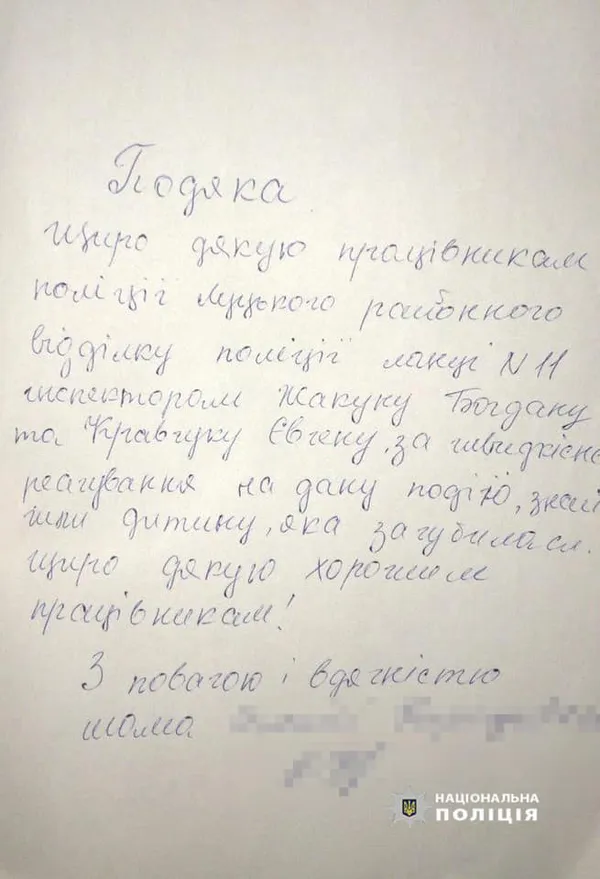 Подяка
Щиро дякую працівникам
поліції Луцького районного
відділку поліції ланці №11
інспектором Жакуку Богдану
та Кравчуку Євгену, за швидкісне
реагування на дану подію, знай
шли дитину, яка загубилася.
Щиро дякую хорошим
працівникам!
З повагою і вдячністю
мама
НАЦІОНАЛЬНА
ПОЛІЦІЯ